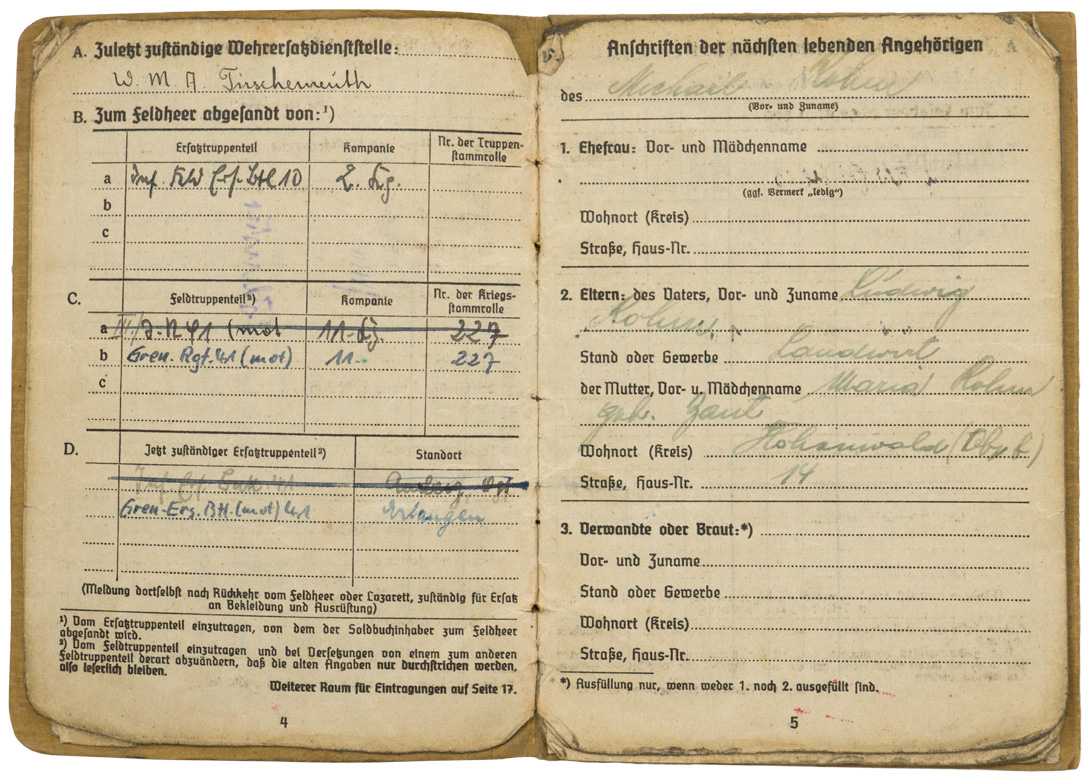 A. Zuletzt zuständige Wehrersatzdienststelle:
W. M. A. Tirschenreuth
B. Zum Feldheer abgesandt von:¹)
Ersatztruppenteil Kompanie Nr. der Truppen-
stammrolle
a Inf. Feld Ers. Btl 10 2. Kp.
b
c
C. Feldtruppenteil²) Kompanie Nr. der Kriegs-
stammrolle
a III./J. R. 41 (mot 11. Kp. 227
b Gren. Rgt. 41 (mot) 11. 227
c
D. Jetzt zuständiger Ersatztruppenteil²) Standort
Gren-Ers. Btl. (mot) 41 Erlangen
(Meldung dortselbst nach Rückkehr vom Feldheer oder Lazarett, zuständig für Ersatz
an Bekleidung und Ausrüstung)
¹) Vom Ersatztruppenteil einzutragen, von dem der Soldbuchinhaber zum Feldheer
abgesandt wird.
²) Vom Feldtruppenteil einzutragen und bei Versetzungen von einem zum anderen
Feldtruppenteil derart abzuändern, daß die alten Angaben nur durchstrichen werden,
also leserlich bleiben.
Weiterer Raum für Eintragungen auf Seite 17.
4
Anschriften der nächsten lebenden Angehörigen
des Michael Kohm
(Vor- und Zuname)
1. Ehefrau: Vor- und Mädchenname
(ggf. Vermerk „ledig")
Wohnort (Kreis)
Straße, Haus-Nr.
2. Eltern: des Vaters, Vor- und Zuname Ludwig
Kohm
Stand oder Gewerbe Landwirt
der Mutter, Vor- u. Mädchenname Maria Kohm
geb. Zant
Wohnort (Kreis) Hohenwald
Straße, Haus-Nr. 14
3. Verwandte oder Braut:*)
Vor- und Zuname
Stand oder Gewerbe
Wohnort (Kreis)
Straße, Haus-Nr.
*) Ausfüllung nur, wenn weder 1. noch 2. ausgefüllt sind.
5